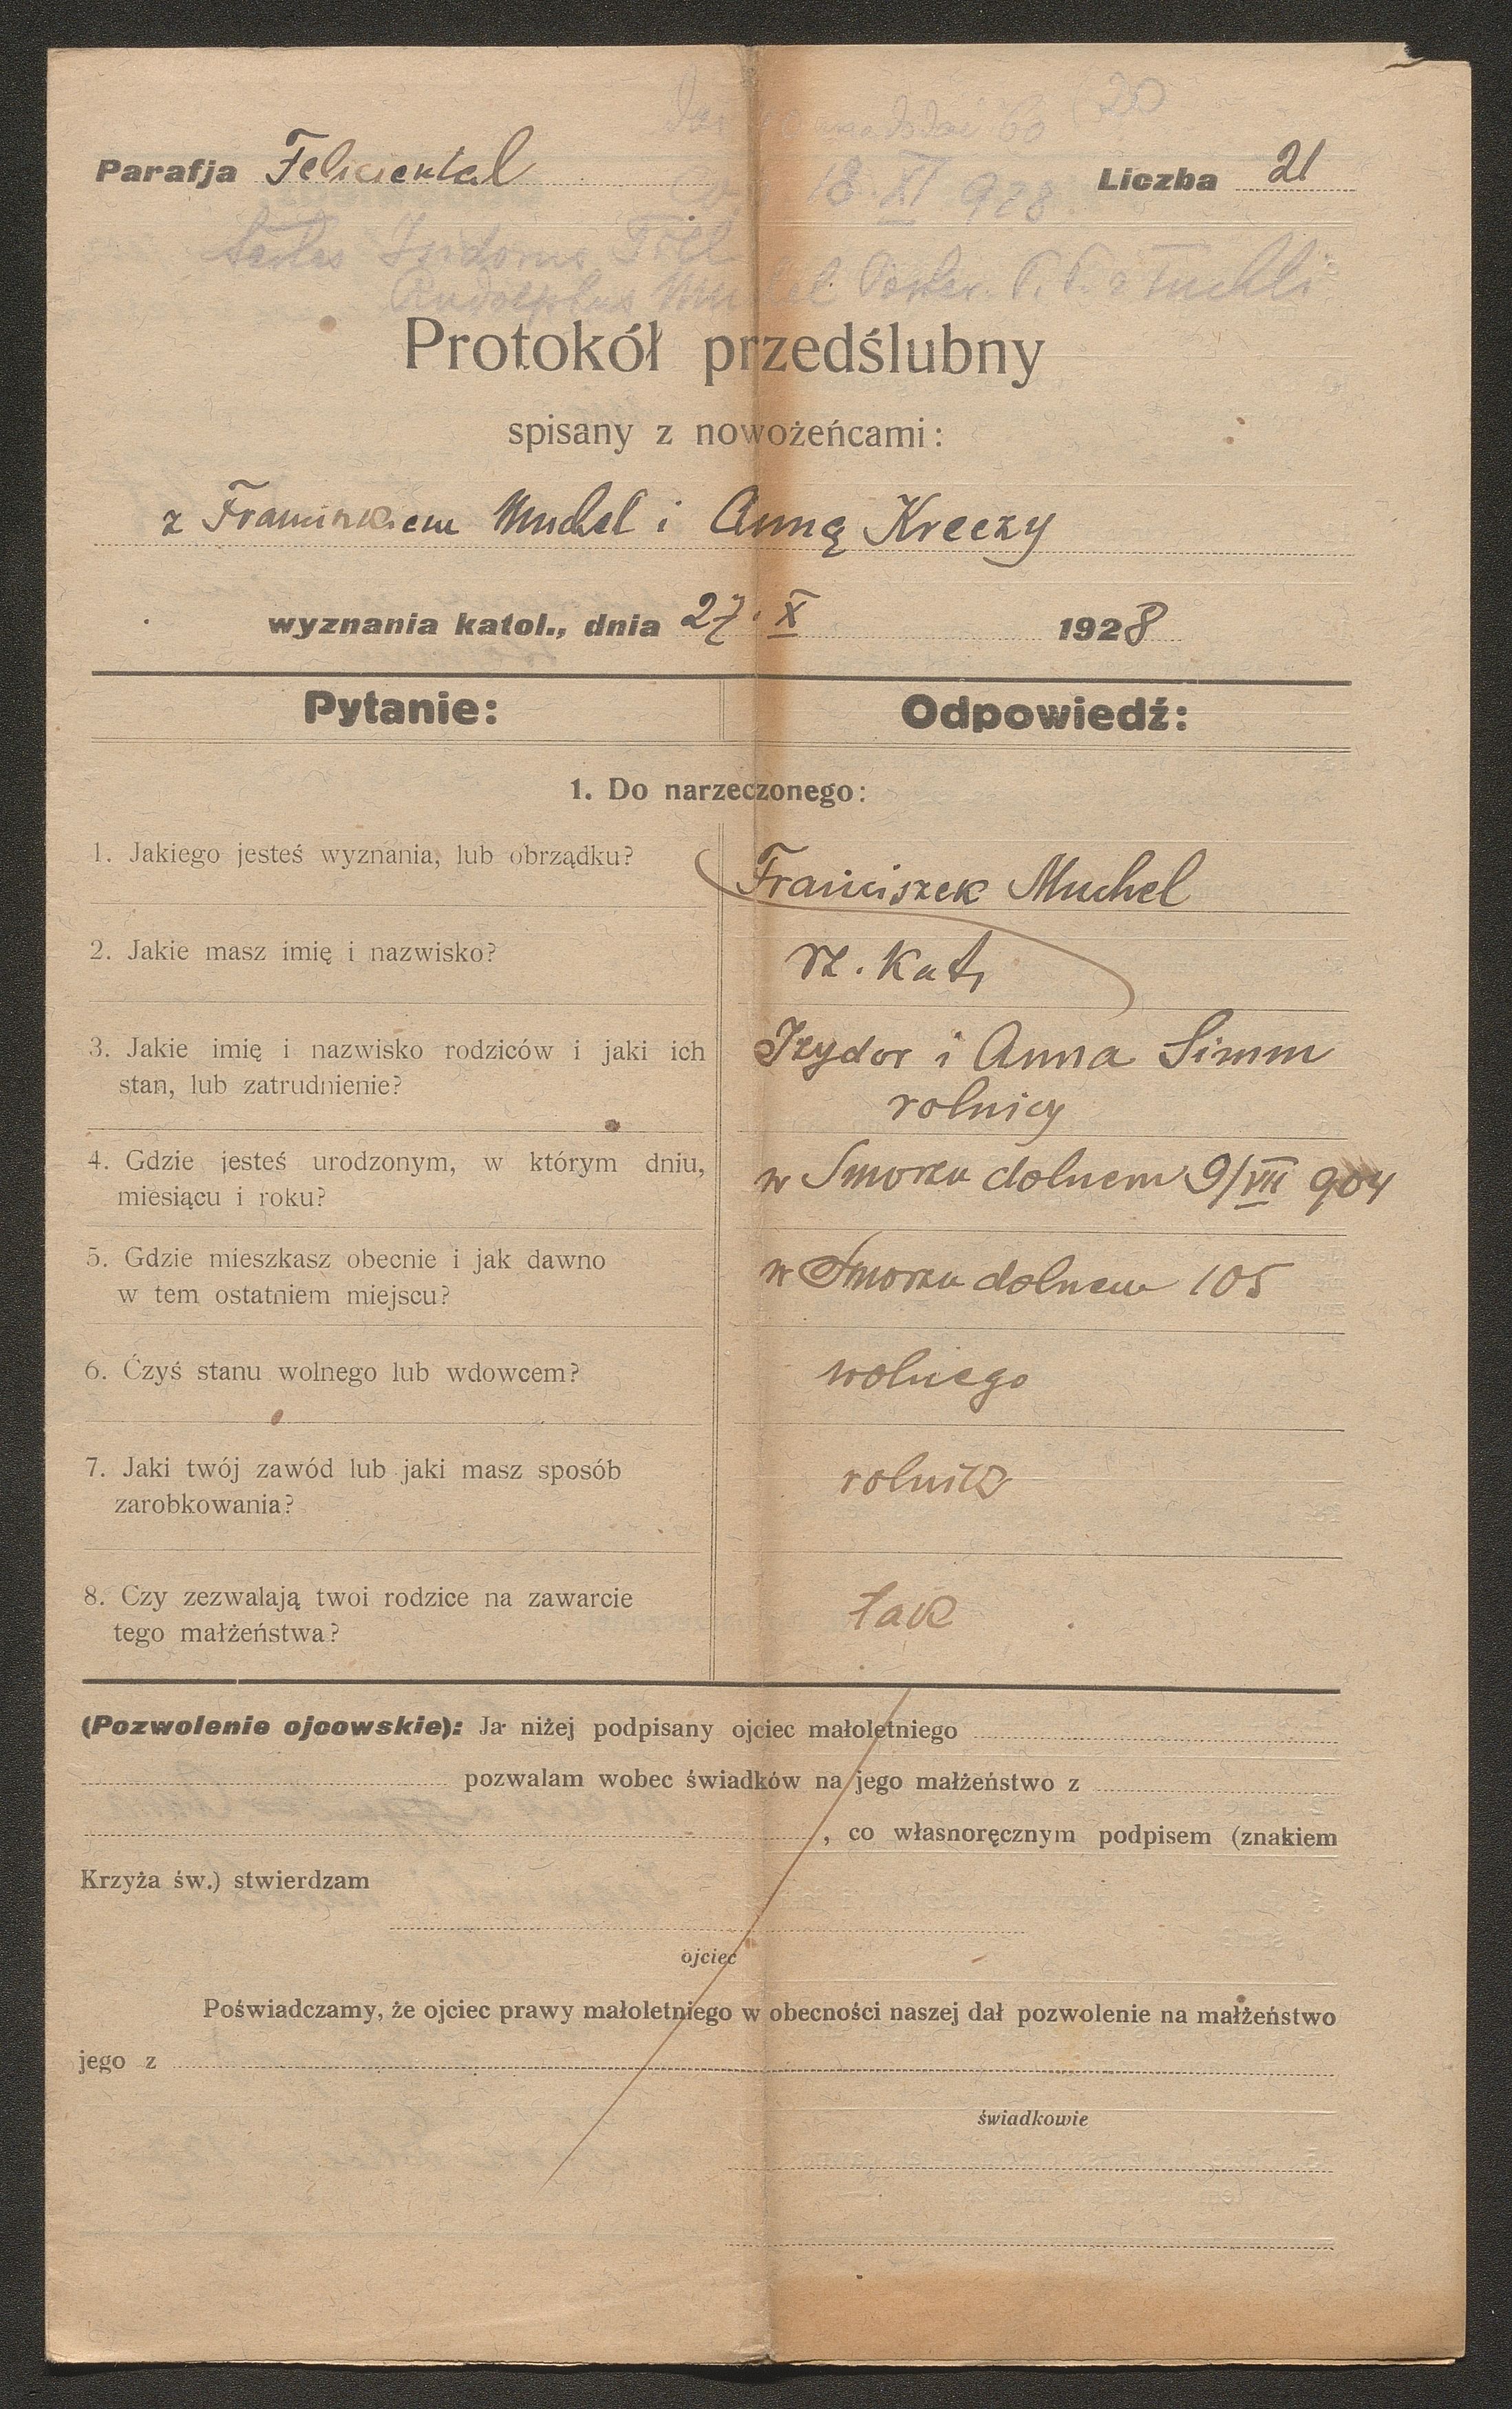 20
Parafja Feliciental Liczba 21
18. XI 928
Testes Izidorus
Rudolphus Muchel
Protokół przedślubny
spisany z nowożeńcami:
z Franciszkiem Muchel i Anną Kreczy
wyznania katol., dnia 27. X 1928
Pytanie: Odpowiedź:
1. Do narzeczonego:
1. Jakiego jesteś wyznania, lub obrządku? Franciszek Muchel
2. Jakie masz imię i nazwisko? rz. kat.
3. Jakie imię i nazwisko rodziców i jaki ich Izydor i Anna Simm
stan, lub zatrudnienie? rolnicy
4. Gdzie jesteś urodzonym, w którym dniu, w Smorzu dolnem 9/VII 904
miesiącu i roku?
5. Gdzie mieszkasz obecnie i jak dawno w Smorzu dolnem 105
w tem ostatniem miejscu?
6. Czyś stanu wolnego lub wdowcem? wolnego
7. Jaki twój zawód lub jaki masz sposób rolnik
zarobkowania?
8. Czy zezwalają twoi rodzice na zawarcie tak
tego małżeństwa?
(Pozwolenie ojcowskie): Ja niżej podpisany ojciec małoletniego
pozwalam wobec świadków na jego małżeństwo z
, co własnoręcznym podpisem (znakiem
Krzyża św.) stwierdzam
ojciec
Poświadczamy, że ojciec prawy małoletniego w obecności naszej dał pozwolenie na małżeństwo
jego z
świadkowie